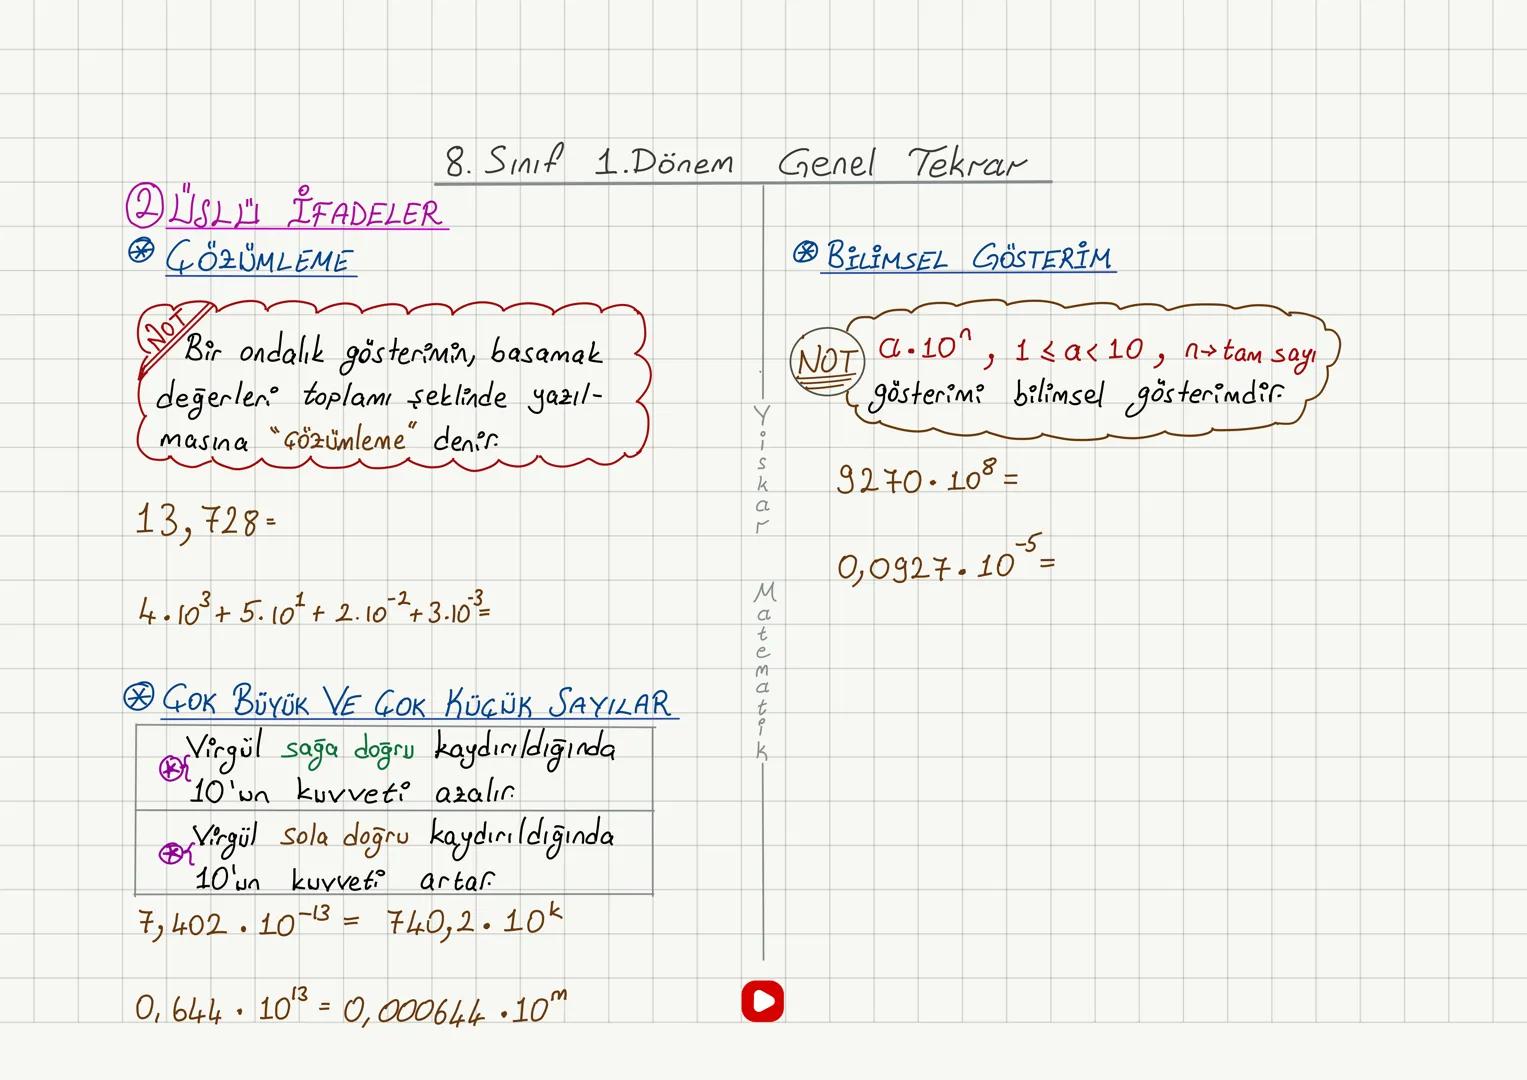 8. Sınıf 1.Dönem Genel Tekrar
2 ÜSLÜ İFADELER
ÇÖZÜMLEME
NOT
Bir ondalık gösterimin, basamak
değerleri toplamı şeklinde yazıl-
masına "çözümleme" denir.
13,728=
4.10³+ 5.10¹+ 2.10⁻²+3.10⁻³=
ÇOK BÜYÜK VE ÇOK KÜÇÜK SAYILAR
Virgül sağa doğru kaydırıldığında
10'un kuvveti azalır.
Virgül sola doğru kaydırıldığında
10'un kuvveti artar.
7,402 . 10⁻¹³ = 740,2 . 10ᵏ
0,644 . 10¹³ = 0,000644 .10ᵐ
Yiskar Matematik
BİLİMSEL GÖSTERİM
NOT
a.10ⁿ , 1 ≤ a < 10 , n→tam sayı
gösterimi bilimsel gösterimdir.
9270 . 10⁸ =
0,0927 . 10⁻⁵ =